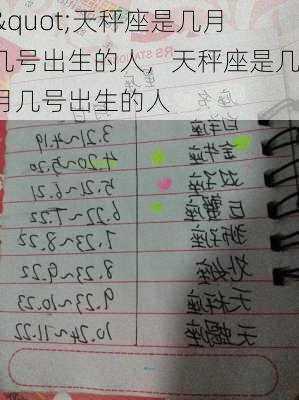 &quot;天秤座是几月
几号出生的人，天秤座是几
月几号出生的人
白羊座 3.21~4.19
金牛座 4.20~5.20
双子座 5.21~6.21
巨蟹座 6.22~7.22
狮子座 7.23~8.22
处女座 8.23~9.22
天秤座 9.23~10.23
天蝎座 10.24~11.22